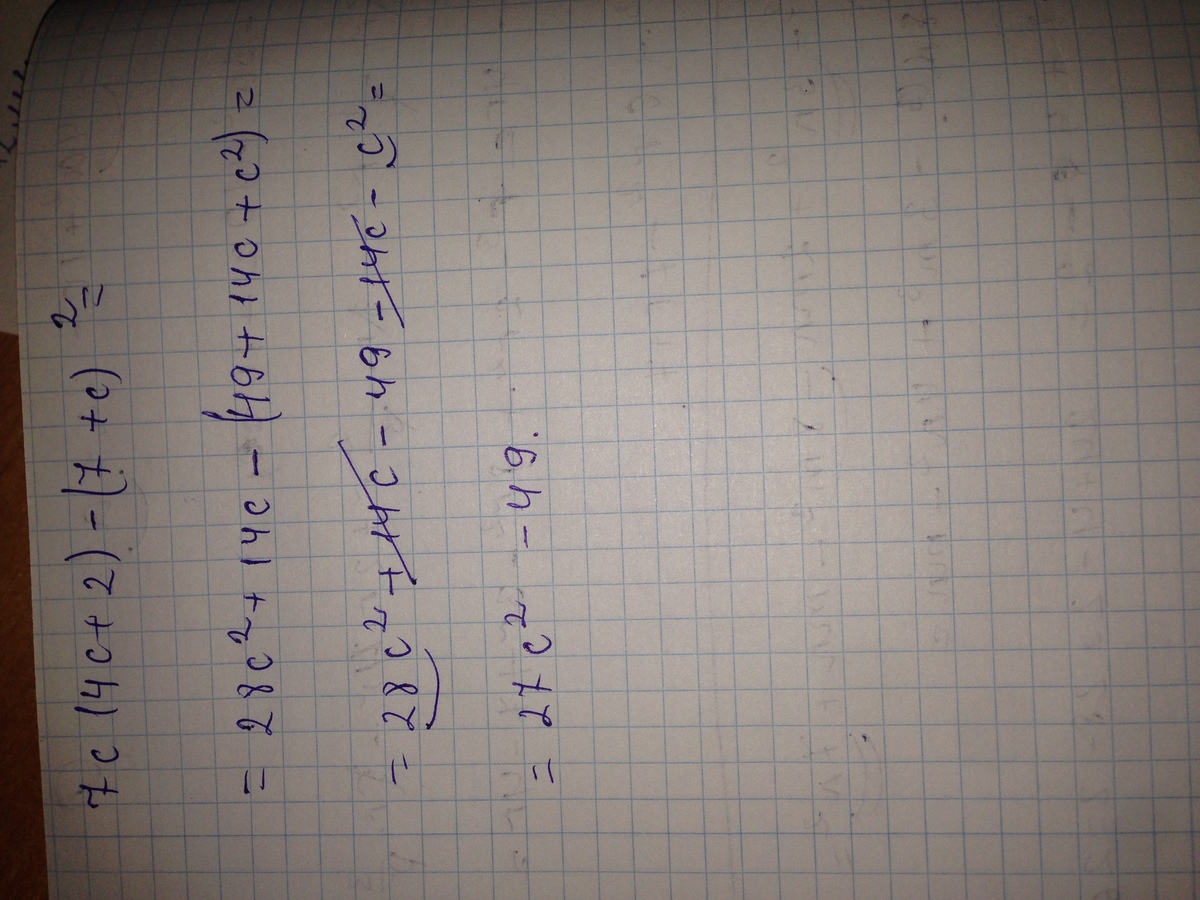 7c(4c+2)-(7+c)²=
= 28c²+14c-(49+14c+c²)=
= 28c²+14c-49-14c-c²=
= 27c²-49.